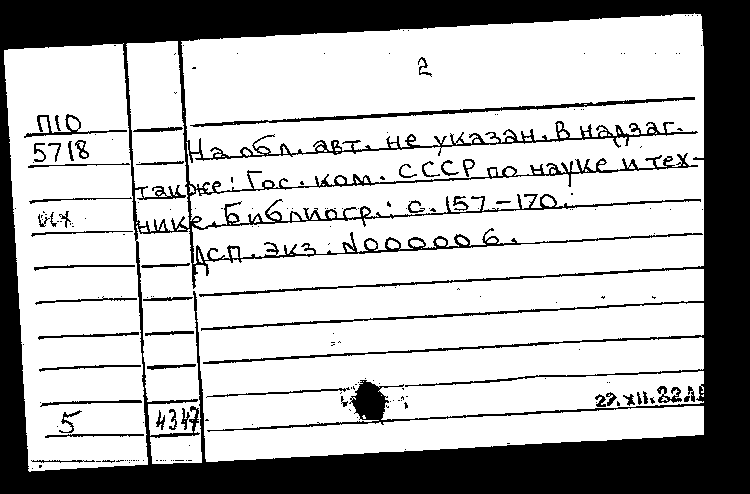 2
П10
5718
На обл. авт. не указан. В надзаг.
также: Гос. ком. СССР по науке и тех-
нике. Библиогр.: с. 157-170.
ДСП. Экз. №000006.
5 4347